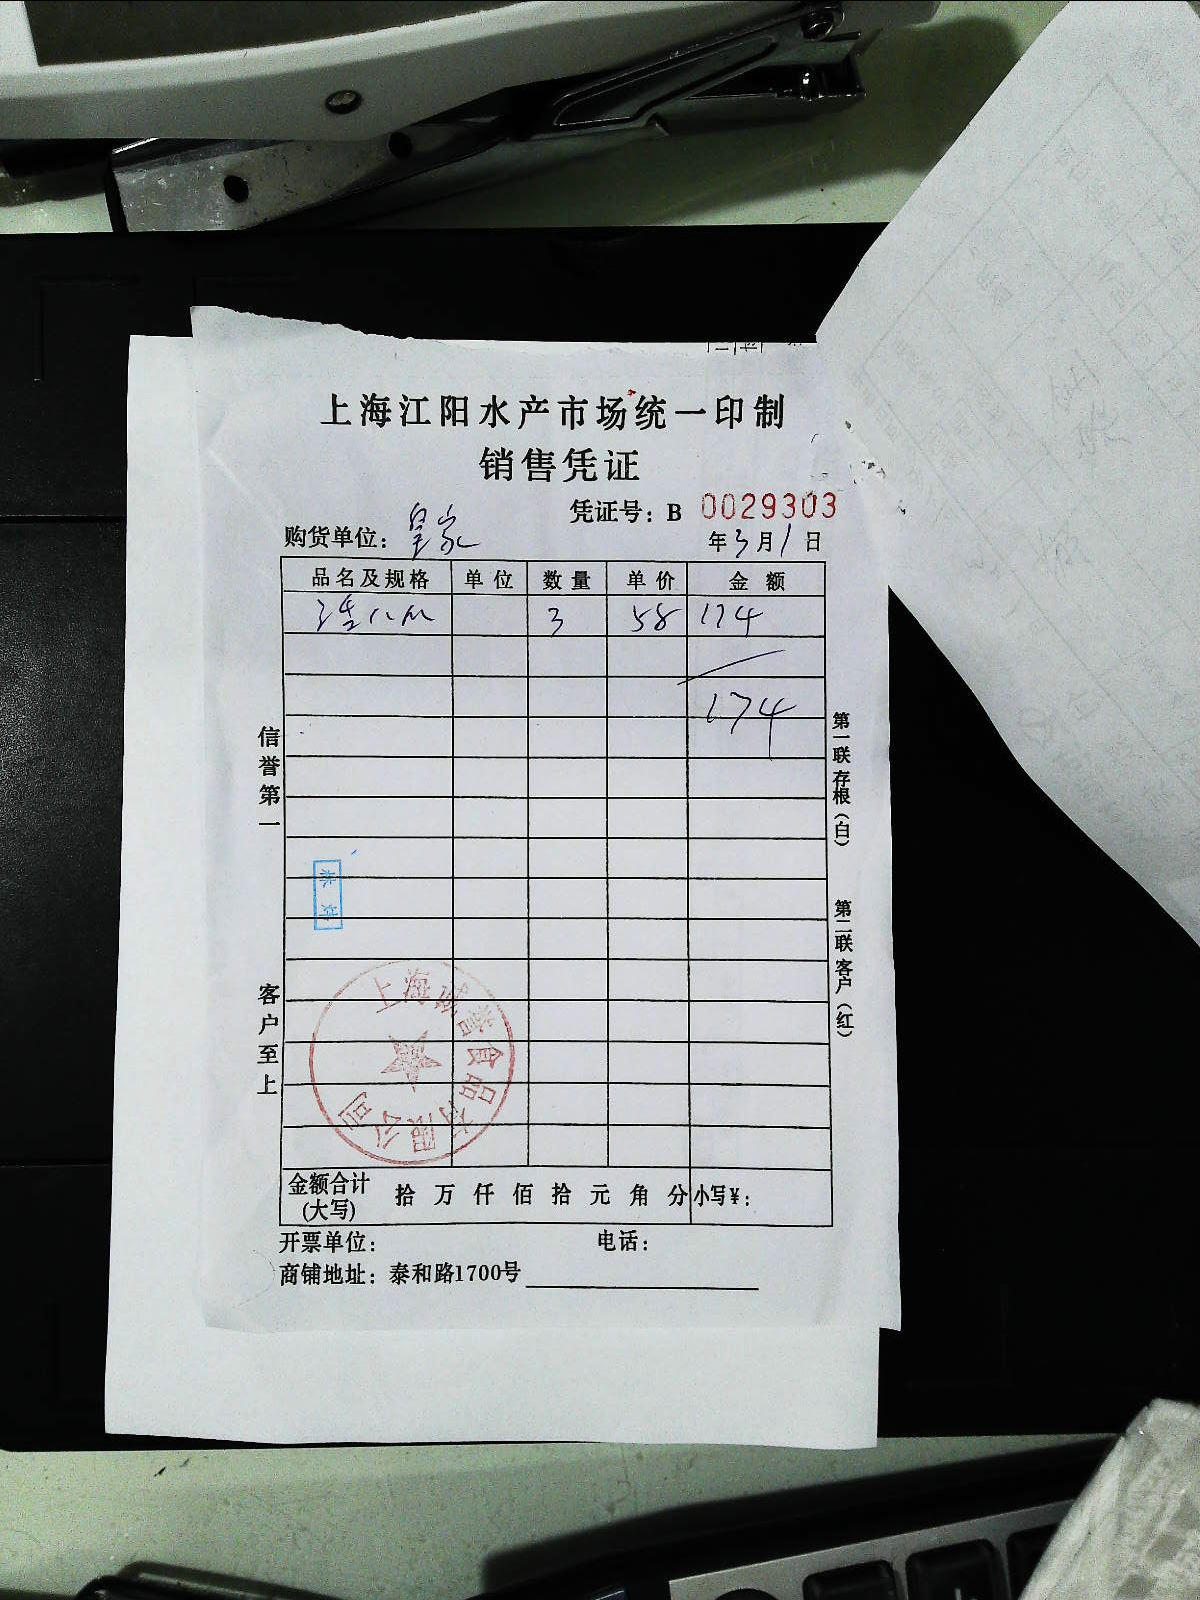 上海江阳水产市场统一印制
销售凭证
凭证号：B 0029303
购货单位：皇家 年3月1日
品名及规格 单位 数量 单价 金额
3 58 174
174
信誉第一
客户至上
第一联存根（白）
第二联客户（红）
食品有限公司
金额合计(大写) 拾 万 仟 佰 拾 元 角 分 小写¥：
开票单位： 电话：
商铺地址：泰和路1700号